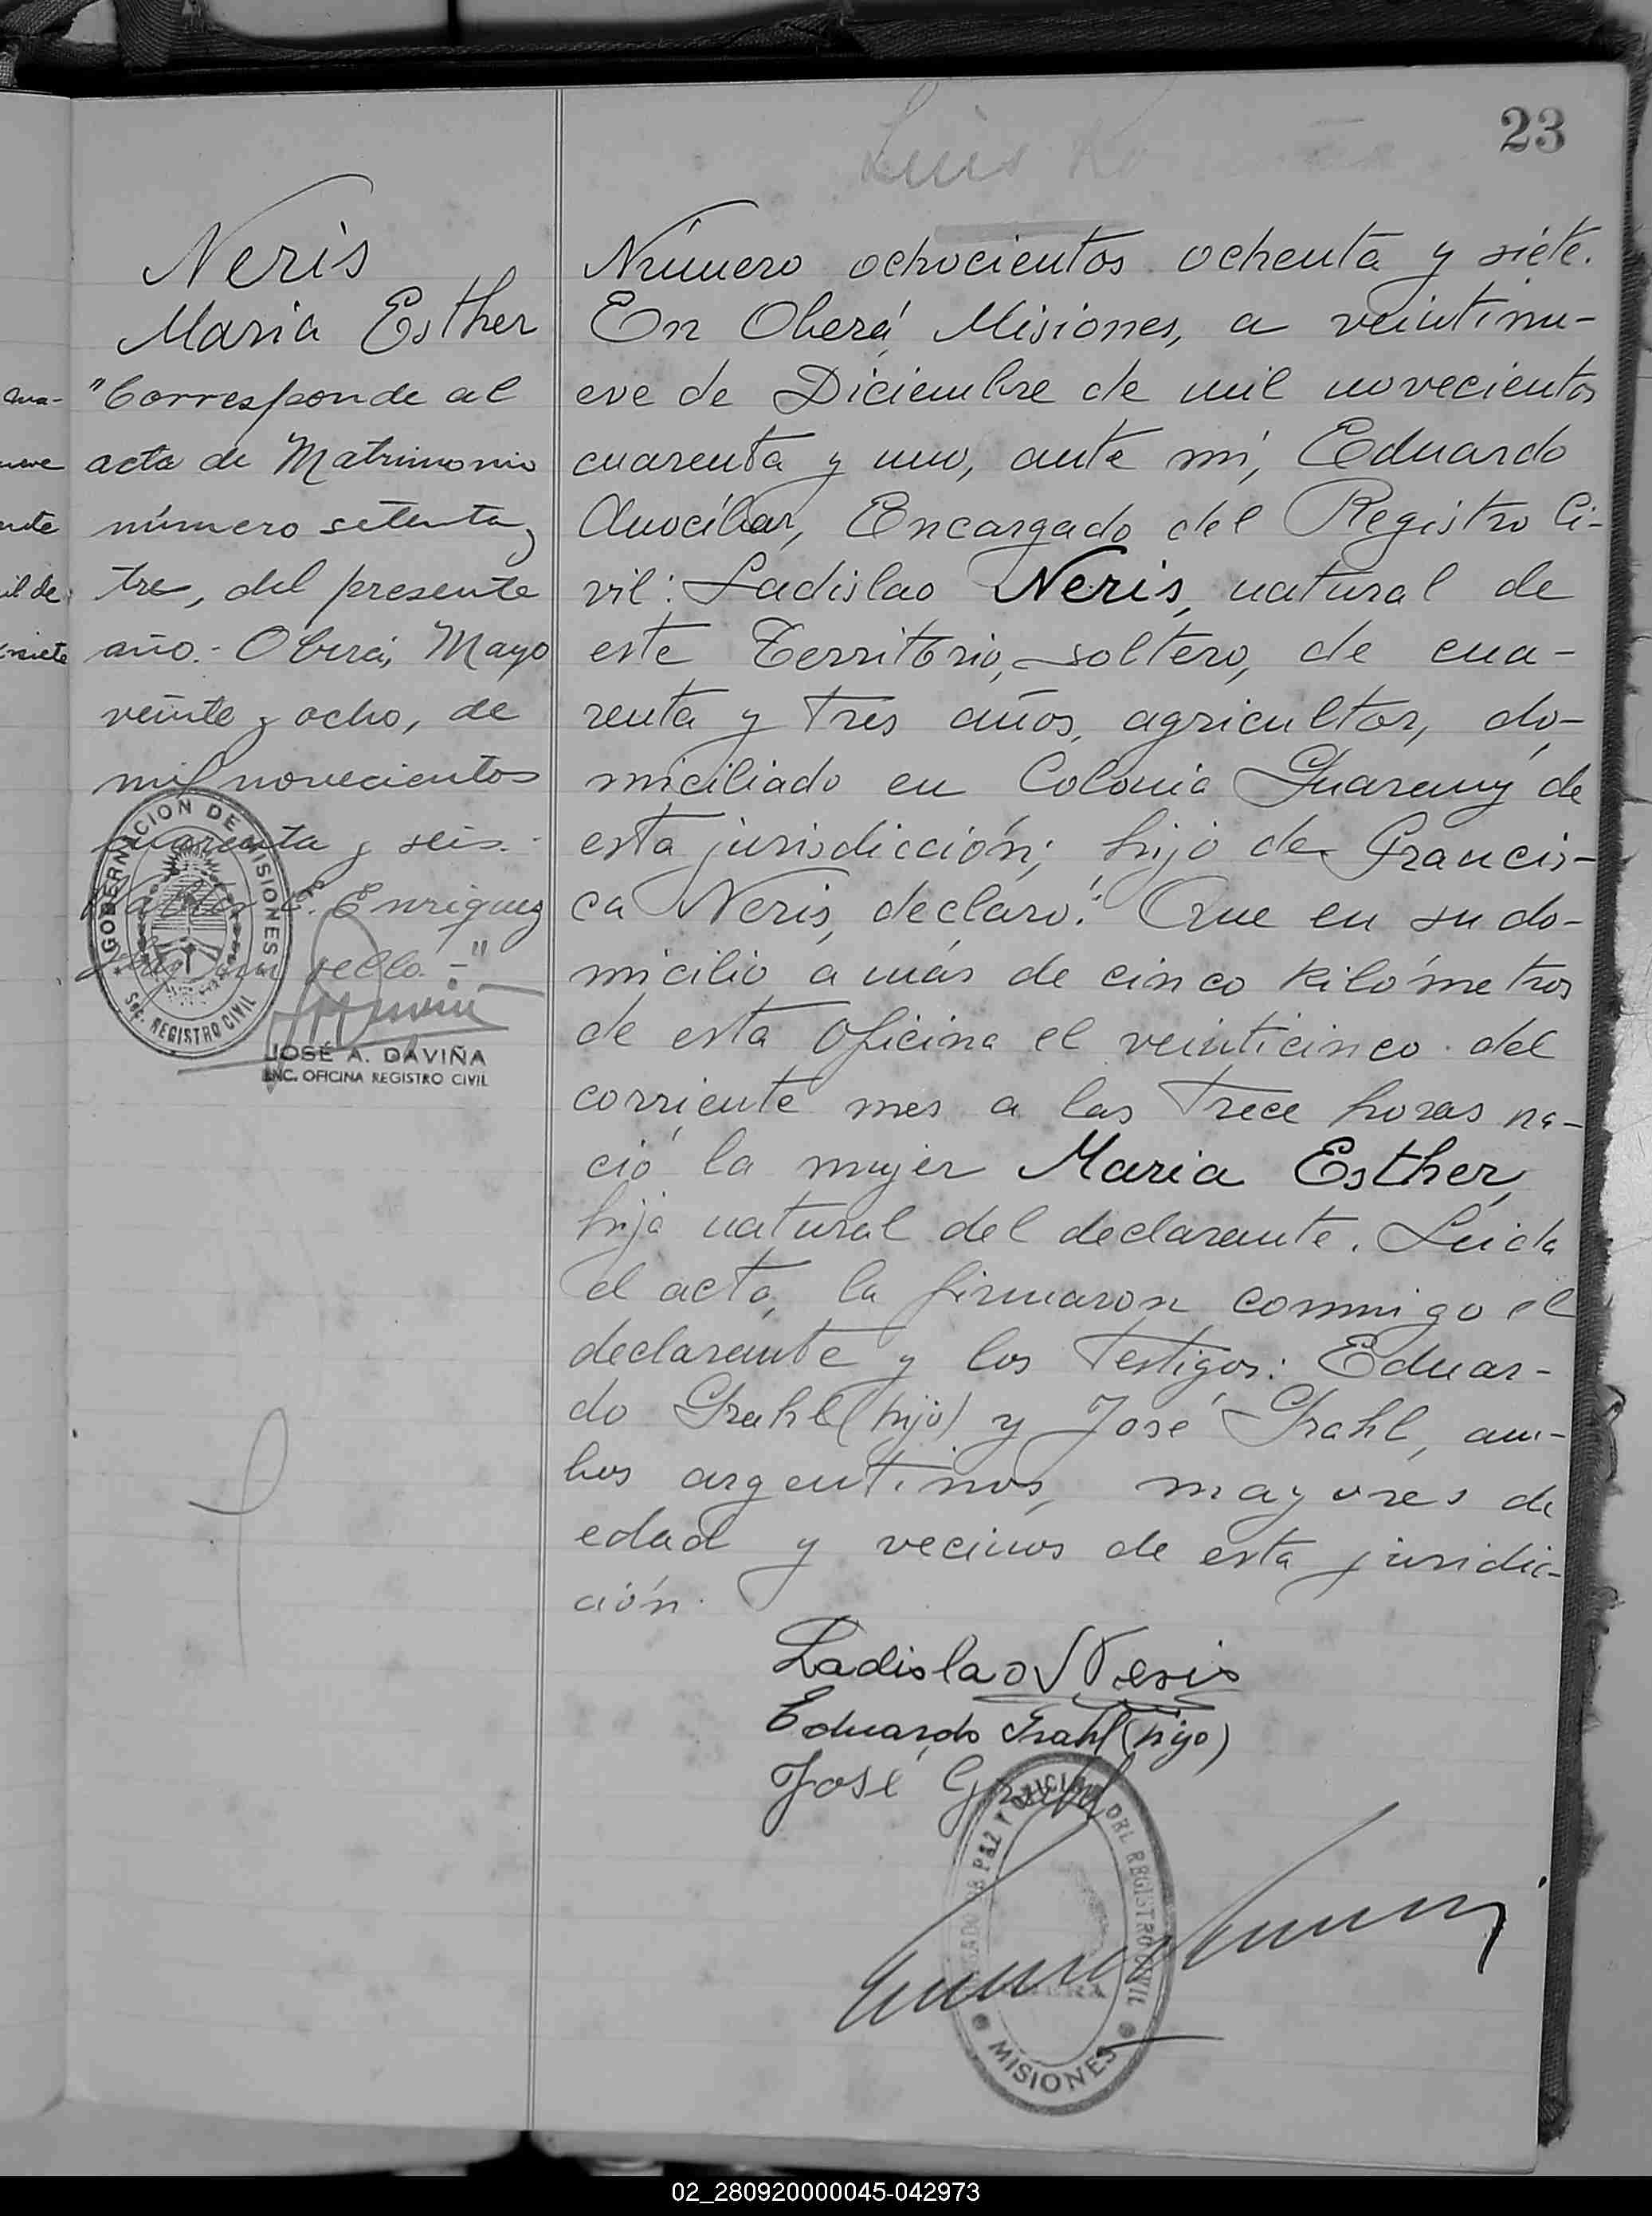 23
Luis
Neris
Maria Esther
"Corresponde al
acta de Matrimonio
número setenta y
tre, del presente
año.- Oberá, Mayo
veinte y ocho, de
mil novecientos
cuarenta y seis.-
E. Enriquez
sello.-"
GOBERNACION DE MISIONES
SEC. REGISTRO CIVIL
JOSÉ A. DAVIÑA
ENC. OFICINA REGISTRO CIVIL
Número ochocientos ochenta y siete.
En Oberá, Misiones, a veintinu-
eve de Diciembre de mil novecientos
cuarenta y uno, ante mí, Eduardo
Encargado del Registro Ci-
vil: Ladislao Neris, natural de
este Territorio, soltero, de cua-
renta y tres años, agricultor, do-
miciliado en Colonia Guarany de
esta jurisdicción; hijo de Francis-
ca Neris, declaró: Que en su do-
micilio a más de cinco kilómetros
de esta oficina el veinticinco del
corriente mes a las trece horas na-
ció la mujer Maria Esther,
hija natural del declarante. Leida
el acta, la firmaron conmigo el
declarante y los testigos: Eduar-
do Grahl (hijo) y José Grahl, am-
bos argentinos, mayores de
edad y vecinos de esta juridic-
ción.
Ladislao Neris
Eduardo Grahl (hijo)
José Grahl
JUZGADO DE PAZ Y OFICINA DEL REGISTRO CIVIL
MISIONES
ana-
ueve
nte
il de
siete
02_280920000045-042973